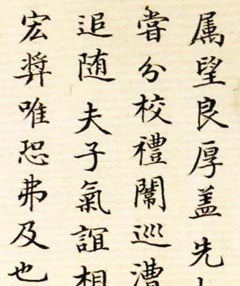 属望良厚盖先
嘗分校禮闈巡漕
追随夫子氣誼相
宏奨唯恐弗及也